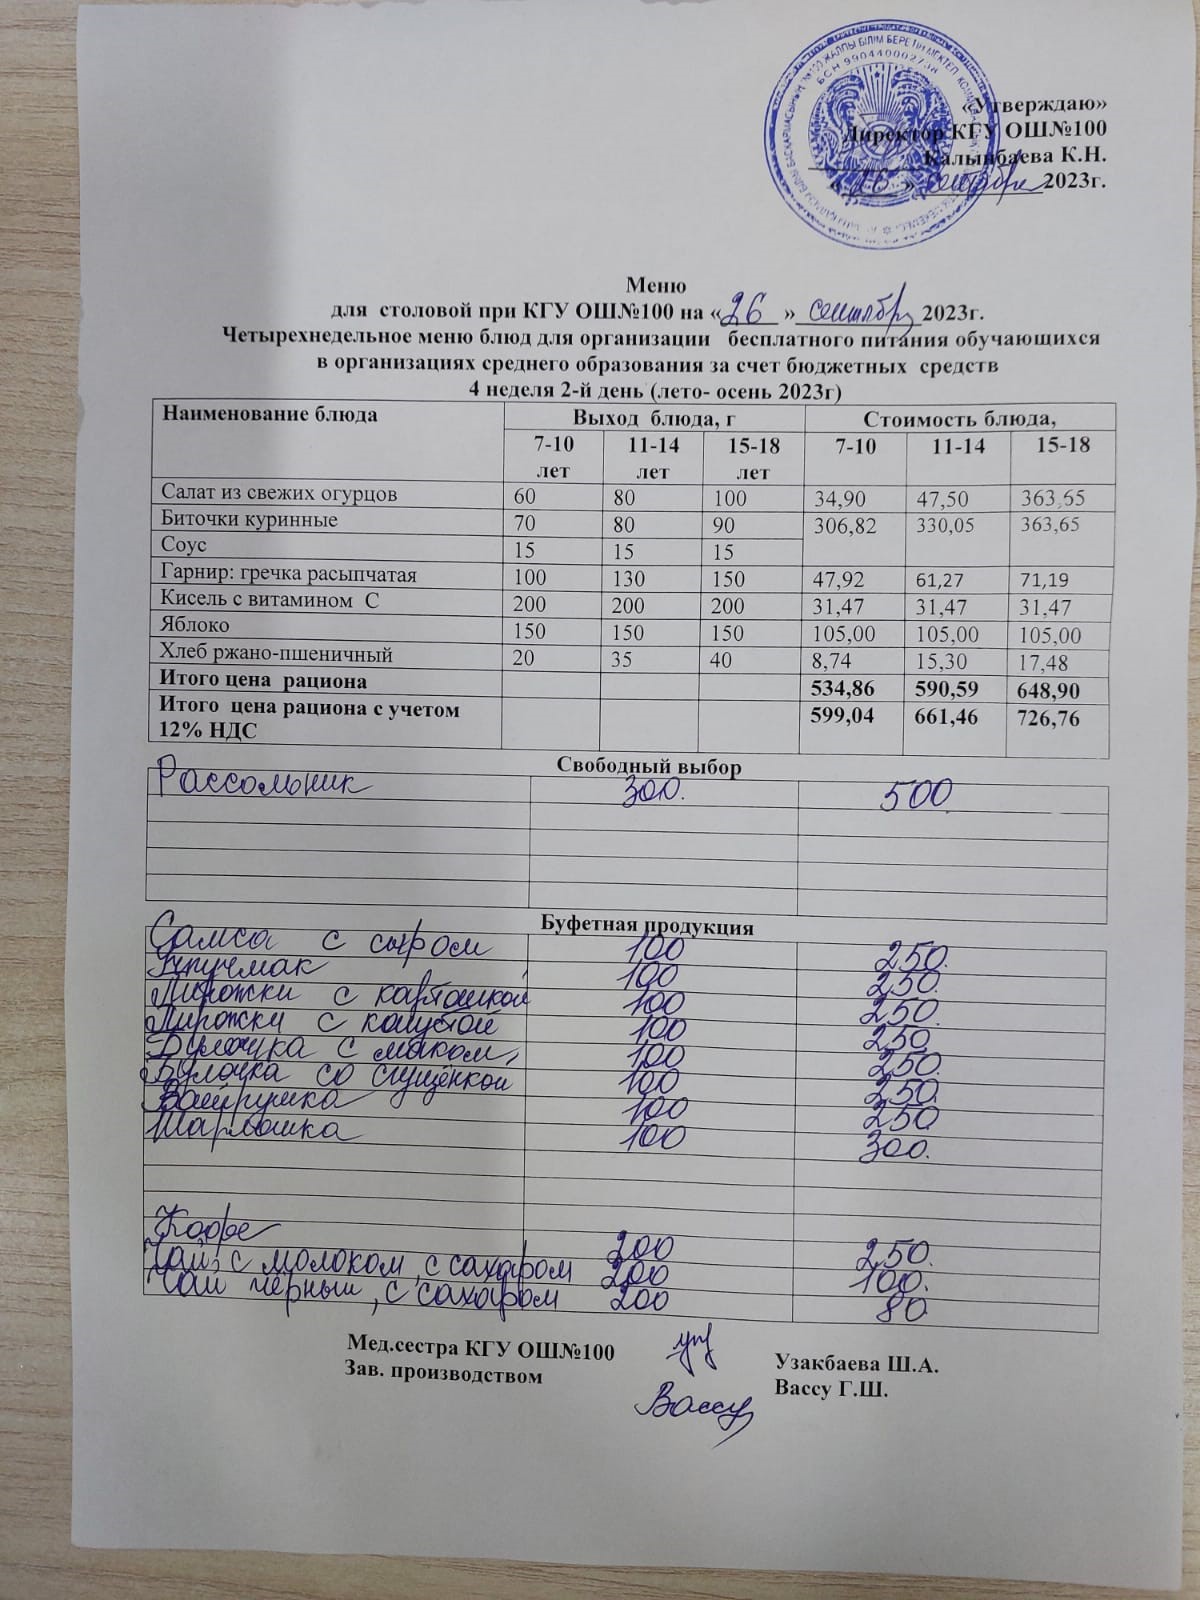 «Утверждаю»
Директор КГУ ОШ№100
Калынбаева К.Н.
«26» сентября 2023г.
Меню
для столовой при КГУ ОШ№100 на «26» сентябр 2023г.
Четырехнедельное меню блюд для организации бесплатного питания обучающихся
в организациях среднего образования за счет бюджетных средств
4 неделя 2-й день (лето- осень 2023г)
Наименование блюда Выход блюда, г Стоимость блюда,
7-10 лет 11-14 лет 15-18 лет 7-10 11-14 15-18
Салат из свежих огурцов 60 80 100 34,90 47,50 363,65
Биточки куринные 70 80 90 306,82 330,05 363,65
Соус 15 15 15
Гарнир: гречка расыпчатая 100 130 150 47,92 61,27 71,19
Кисель с витамином С 200 200 200 31,47 31,47 31,47
Яблоко 150 150 150 105,00 105,00 105,00
Хлеб ржано-пшеничный 20 35 40 8,74 15,30 17,48
Итого цена рациона 534,86 590,59 648,90
Итого цена рациона с учетом
12% НДС 599,04 661,46 726,76
Свободный выбор
Рассольник 300. 500
Буфетная продукция
Самса с сыром 100 250.
100 250.
Пирожки с картошкой 100 250.
Пирожки с капустой 100 250
Булочка с маком, 100 250.
Булочка со сгущёнкой 100 250.
Ватрушка 100 250
100 300.
Кофе 200 250.
Чай с молоком, с сахаром 200 100.
Чай чёрный, с сахаром 200 80
Мед.сестра КГУ ОШ№100 Узакбаева Ш.А.
Зав. производством Вассу Вассу Г.Ш.